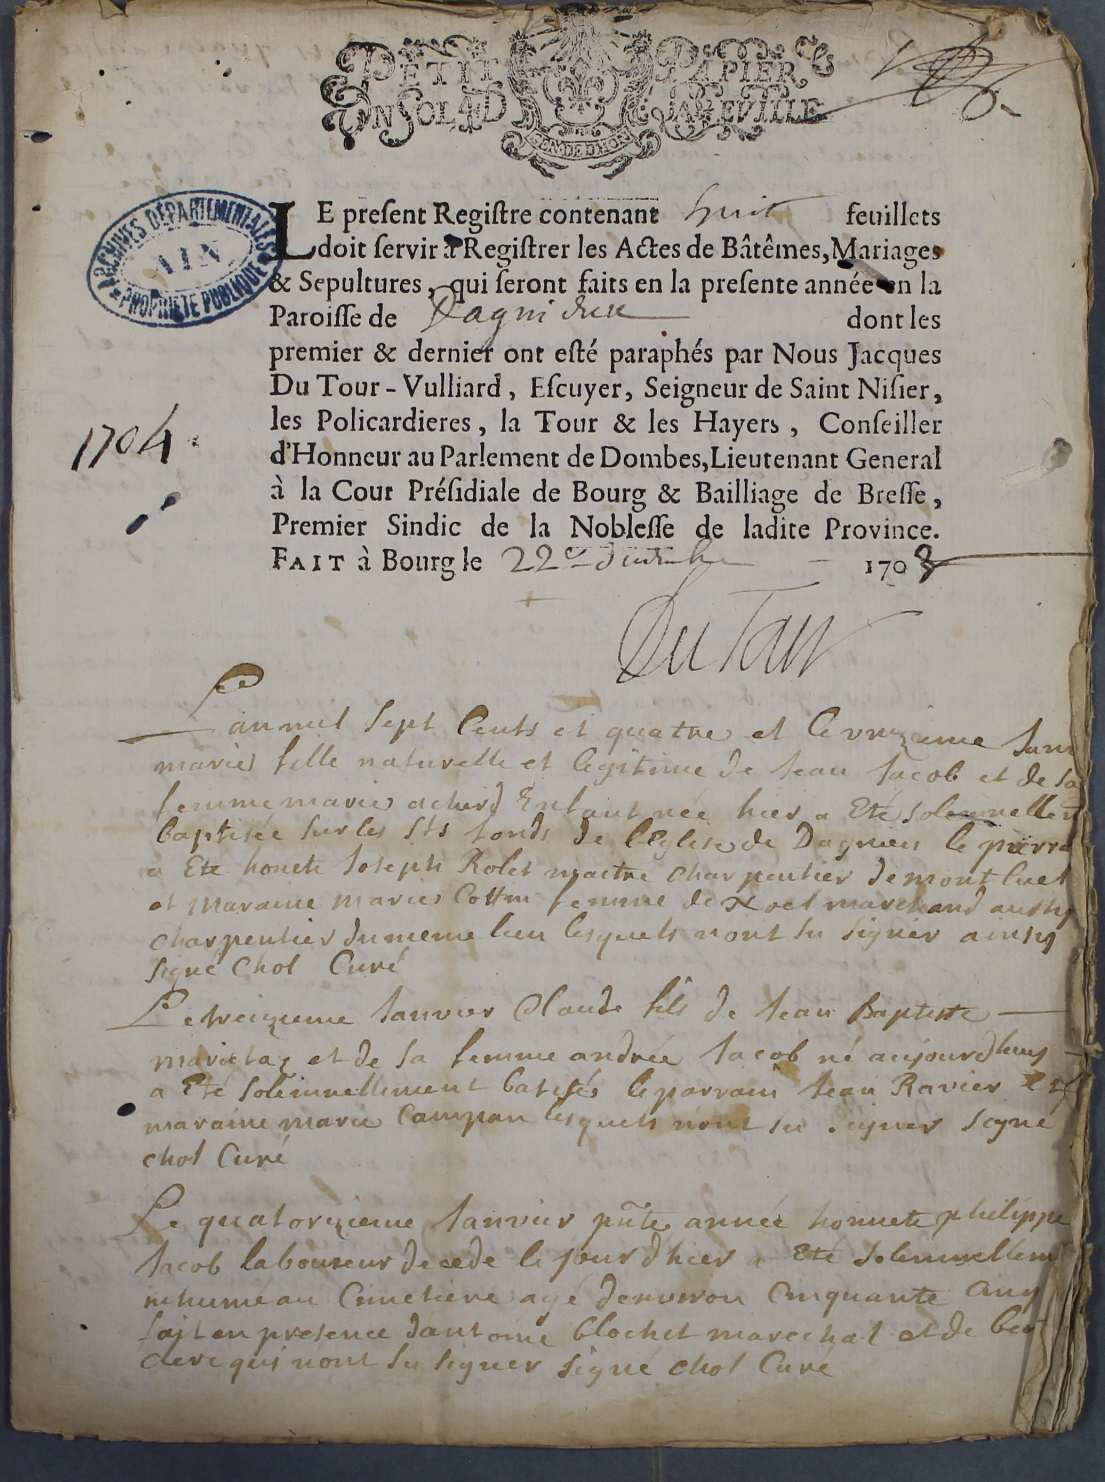 PETIT PAPIER
UN SOL 4 D LA FEVILLE
GEN. DE DIJON
ARCHIVES DÉPARTEMENTALES
AIN
PROPRIÉTÉ PUBLIQUE
1704
LE preſent Regiſtre contenant huit feuillets
doit ſervir à Regiſtrer les Actes de Bâtêmes, Mariages
& Sepultures, qui ſeront faits en la preſente année en la
Paroiſſe de Dagnieux dont les
premier & dernier ont eſté paraphés par Nous Jacques
Du Tour-Vulliard, Eſcuyer, Seigneur de Saint Niſier,
les Policardieres, la Tour & les Hayers, Conſeiller
d'Honneur au Parlement de Dombes, Lieutenant General
à la Cour Préſidiale de Bourg & Bailliage de Breſſe,
Premier Sindic de la Nobleſſe de ladite Province.
FAIT à Bourg le 22e 1703
Du Tour
L'an mil sept cents et quatre et le unzieme Janv
marie fille naturelle et legitime de Jean Jacob et de sa
femme marie Enfant née hier a Eté solemnellem
baptisée sur les sts fonds de l'Eglise de Dagnieu le parra
a Eté honete Joseph Rolet maitre charpentier de montluel
et maraine marie Cottin femme de Noel marchand aussy
charpentier du meme lieu lesquels n'ont su signer ainsy
signé Chol Curé
Le treizieme Janvier Claude fils de Jean Baptiste
et de sa femme andrée Jacob né aujourdhuy
a Eté solemnellement batisés le parrain Jean Ravier et
maraine marie Campan lesquels n'ont su signer signé
chol Curé
Le quatorzieme Janvier pñte année honnete philippe
Jacob laboureur decede le jour d'hier a Eté solemnellem
inhumé au Cimetiere agé d'environ Cinquante ans
fait en presence d'antoine blochet marechal et de
clerc qui n'ont su signer signé chol Curé